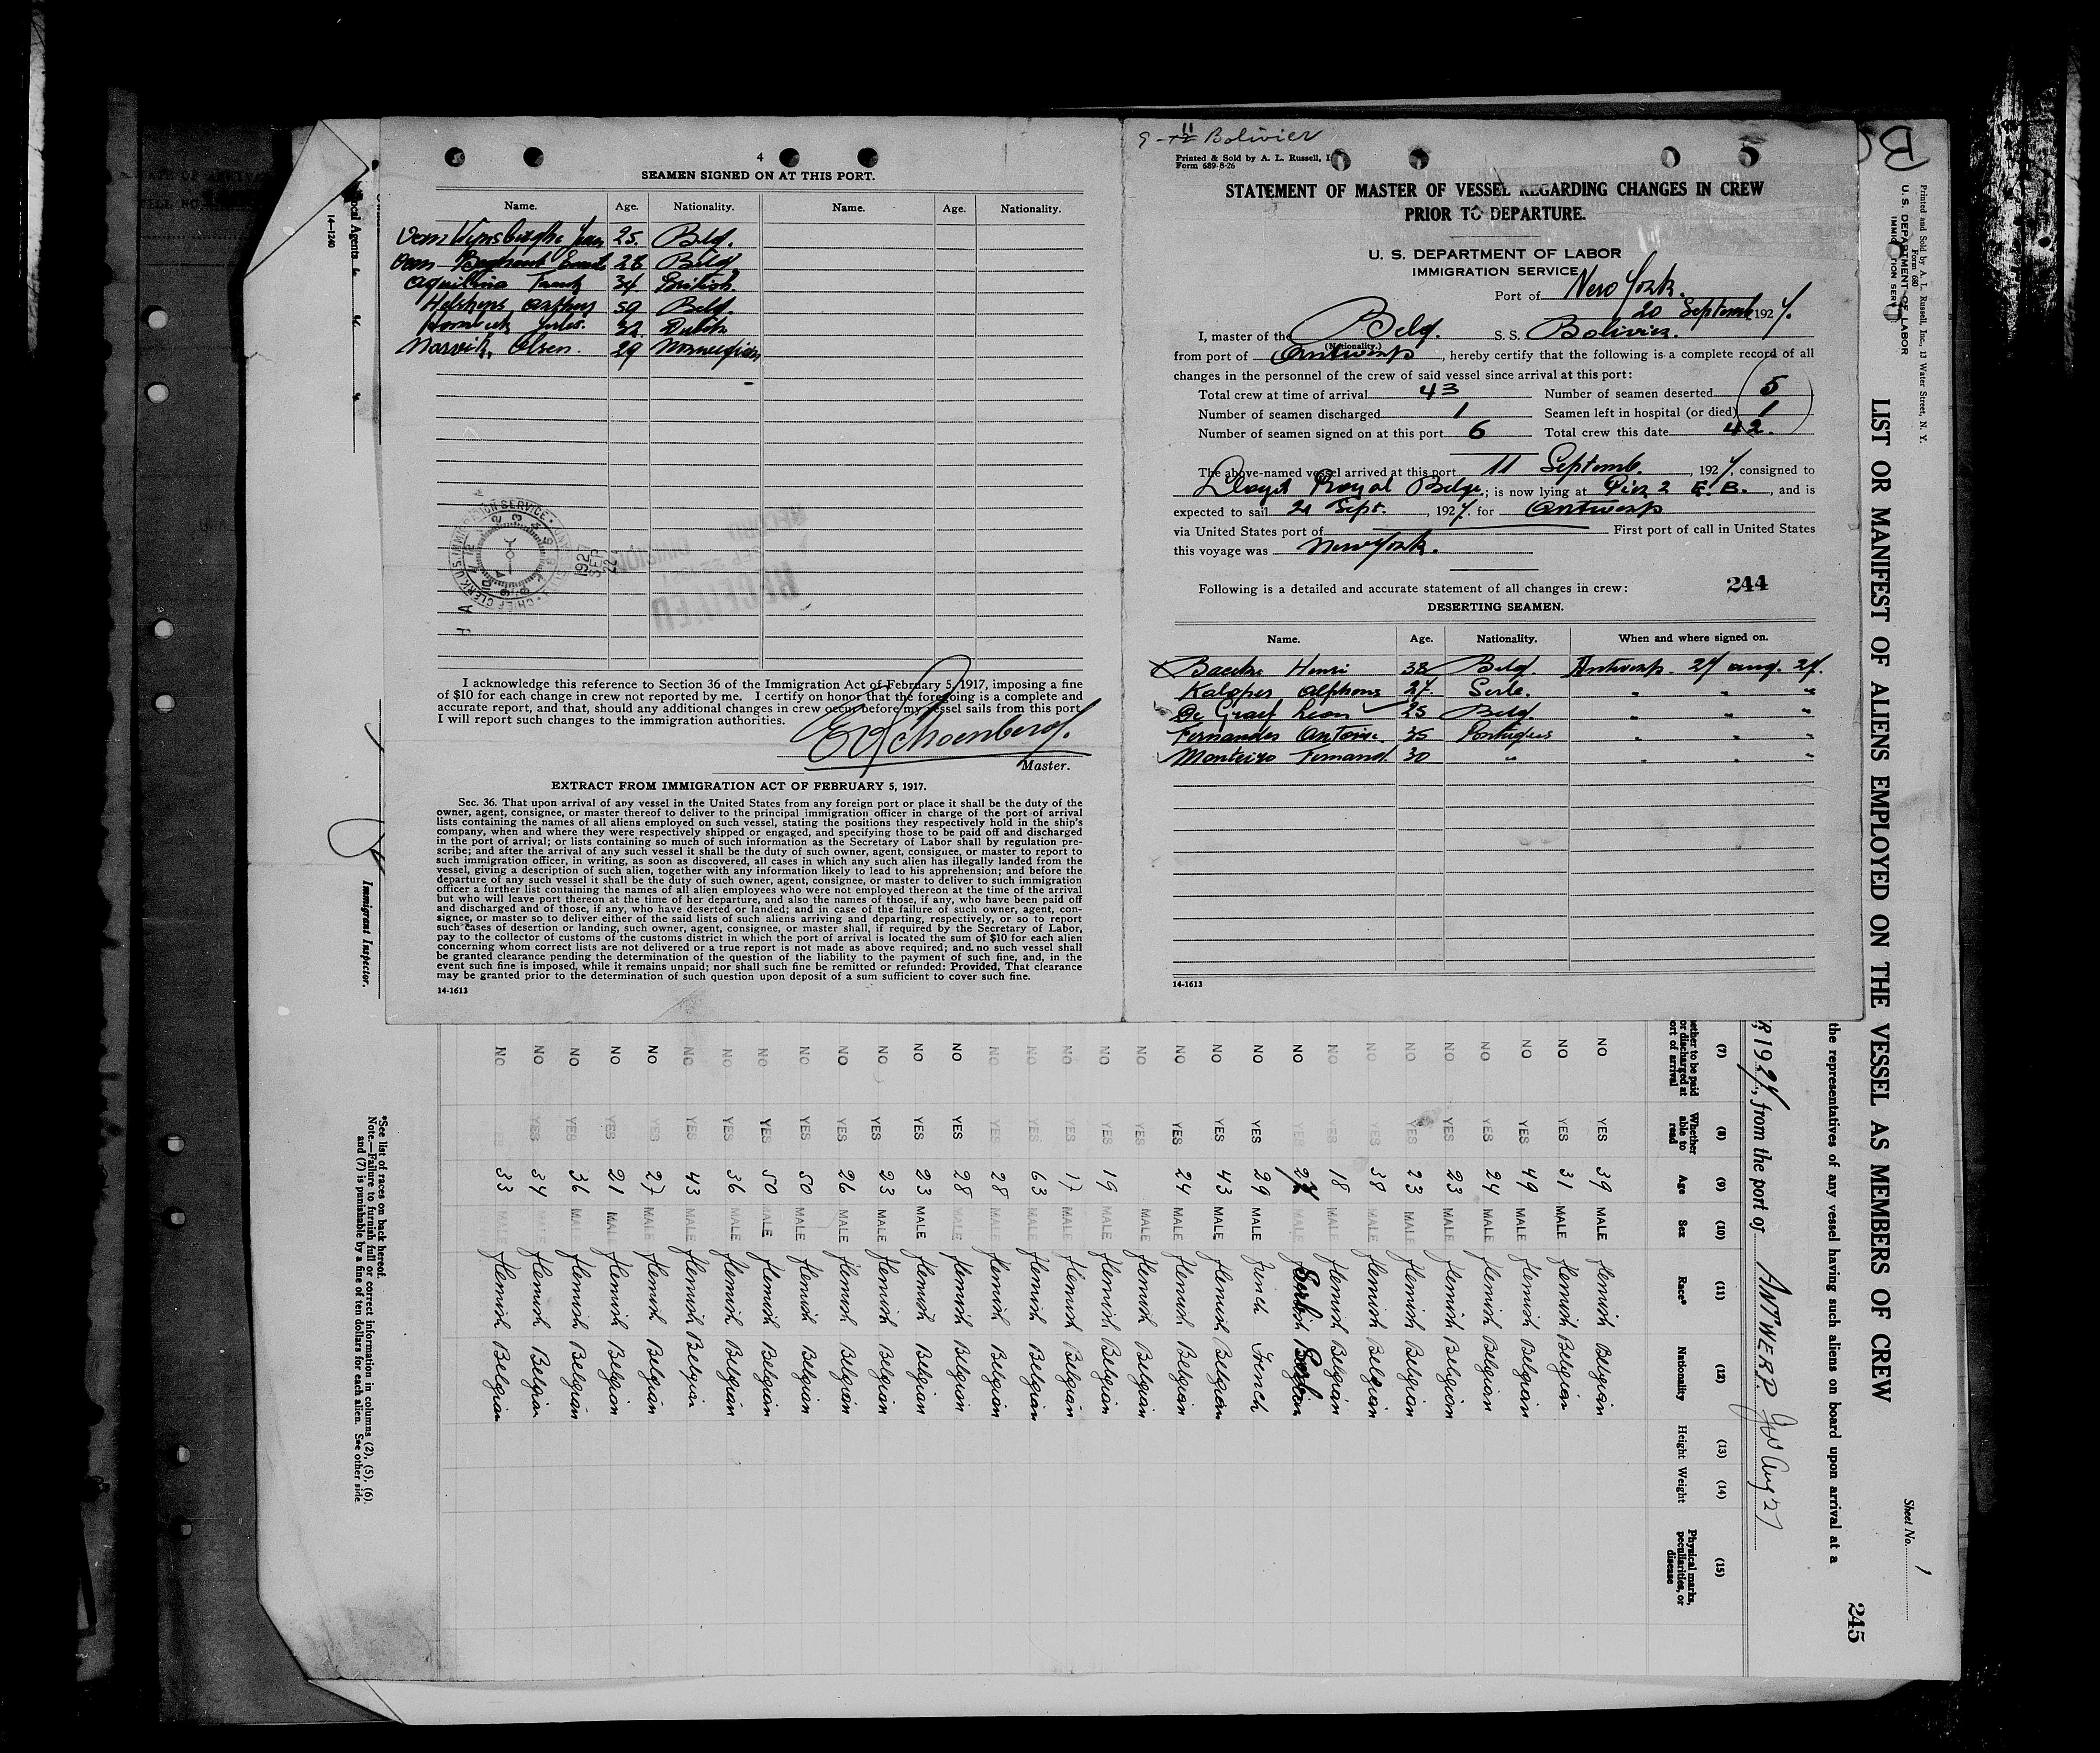 4
SEAMEN SIGNED ON AT THIS PORT.
Name. Age. Nationality. Name. Age. Nationality.
25. Belg.
Van 28 Belg
Aquilina Frank 34 British.
Helskens Arthur 50 Belg.
Jules. 32 Dutch
Narvik, Olsen. 29 Norwegian
CHIEF CLERK U.S. IMMIGRATION SERVICE
1927 SEP 22
RECEIVED
I acknowledge this reference to Section 36 of the Immigration Act of February 5, 1917, imposing a fine
of $10 for each change in crew not reported by me. I certify on honor that the foregoing is a complete and
accurate report, and that, should any additional changes in crew occur before my vessel sails from this port
I will report such changes to the immigration authorities.
Schoenberg.
Master.
EXTRACT FROM IMMIGRATION ACT OF FEBRUARY 5, 1917.
Sec. 36. That upon arrival of any vessel in the United States from any foreign port or place it shall be the duty of the
owner, agent, consignee, or master thereof to deliver to the principal immigration officer in charge of the port of arrival
lists containing the names of all aliens employed on such vessel, stating the positions they respectively hold in the ship's
company, when and where they were respectively shipped or engaged, and specifying those to be paid off and discharged
in the port of arrival; or lists containing so much of such information as the Secretary of Labor shall by regulation pre-
scribe; and after the arrival of any such vessel it shall be the duty of such owner, agent, consignee, or master to report to
such immigration officer, in writing, as soon as discovered, all cases in which any such alien has illegally landed from the
vessel, giving a description of such alien, together with any information likely to lead to his apprehension; and before the
departure of any such vessel it shall be the duty of such owner, agent, consignee, or master to deliver to such immigration
officer a further list containing the names of all alien employees who were not employed thereon at the time of the arrival
but who will leave port thereon at the time of her departure, and also the names of those, if any, who have been paid off
and discharged and of those, if any, who have deserted or landed; and in case of the failure of such owner, agent, con-
signee, or master so to deliver either of the said lists of such aliens arriving and departing, respectively, or so to report
such cases of desertion or landing, such owner, agent, consignee, or master shall, if required by the Secretary of Labor,
pay to the collector of customs of the customs district in which the port of arrival is located the sum of $10 for each alien
concerning whom correct lists are not delivered or a true report is not made as above required; and no such vessel shall
be granted clearance pending the determination of the question of the liability to the payment of such fine, and, in the
event such fine is imposed, while it remains unpaid; nor shall such fine be remitted or refunded: Provided, That clearance
may be granted prior to the determination of such question upon deposit of a sum sufficient to cover such fine.
14-1613
9-11 Bolivier
Printed & Sold by A. L. Russell, I
Form 689-8-26
STATEMENT OF MASTER OF VESSEL REGARDING CHANGES IN CREW
PRIOR TO DEPARTURE.
U. S. DEPARTMENT OF LABOR
IMMIGRATION SERVICE
Port of New York.
20 Septemb 1927.
I, master of the Belg. S. S. Bolivier.
(Nationality.)
from port of Antwerp, hereby certify that the following is a complete record of all
changes in the personnel of the crew of said vessel since arrival at this port:
Total crew at time of arrival 43 Number of seamen deserted 5
Number of seamen discharged 1 Seamen left in hospital (or died) 1
Number of seamen signed on at this port 6 Total crew this date 42.
The above-named vessel arrived at this port 11 Septemb. , 1927, consigned to
Lloyd Royal Belge; is now lying at Pier 2 E. B. , and is
expected to sail 21 Sept. , 1927. for Antwerp
via United States port of First port of call in United States
this voyage was New York.
Following is a detailed and accurate statement of all changes in crew: 244
DESERTING SEAMEN.
Name. Age. Nationality. When and where signed on.
Henri 38 Belg. Antwerp. 27 aug. 27.
Kalopes Alphons 27. Serb. " " "
De Graef Leon 25 Belg. " " "
Fernandes Antoine 35 Portugees " " "
Monteiro Fernand. 30 " " " "
14-1613
Printed and Sold by A. L. Russell, Inc., 13 Water Street, N. Y.
Form 680
U. S. DEPARTMENT OF LABOR
IMMIGRATION SERV
Sheet No. 1
LIST OR MANIFEST OF ALIENS EMPLOYED ON THE VESSEL AS MEMBERS OF CREW
245
the representatives of any vessel having such aliens on board upon arrival at a
R 1927, from the port of ANTWERP. Aug 27
(7) (8) (9) (10) (11) (12) (13) (14) (15)
ether to be paid or discharged at ort of arrival Whether able to read Age Sex Race* Nationality Height Weight Physical marks, peculiarities, or disease
NO YES 39 MALE flemish Belgian
NO YES 31 MALE flemish Belgian
NO YES 49 MALE flemish Belgian
NO YES 24 MALE flemish Belgian
NO YES 23 MALE flemish Belgian
NO YES 23 MALE flemish Belgian
NO YES 38 MALE flemish Belgian
NO YES 18 MALE flemish Belgian
NO YES 27 MALE Serbish Serbian
NO YES 29 MALE French French
NO YES 43 MALE flemish Belgian
NO YES 24 MALE flemish Belgian
NO YES MALE flemish Belgian
NO YES 19 MALE flemish Belgian
NO YES 17 MALE flemish Belgian
NO YES 63 MALE flemish Belgian
NO YES 28 MALE flemish Belgian
NO YES 28 MALE flemish Belgian
NO YES 23 MALE flemish Belgian
NO YES 23 MALE flemish Belgian
NO YES 26 MALE flemish Belgian
NO YES 50 MALE flemish Belgian
NO YES 50 MALE flemish Belgian
NO YES 36 MALE flemish Belgian
NO YES 43 MALE flemish Belgian
NO YES 27 MALE flemish Belgian
NO YES 21 MALE flemish Belgian
NO YES 36 MALE flemish Belgian
NO YES 34 MALE flemish Belgian
NO YES 33 MALE flemish Belgian
*See list of races on back hereof.
Note.—Failure to furnish full or correct information in columns (2), (5), (6),
and (7) is punishable by a fine of ten dollars for each alien. See other side
Immigrant Inspector.
14-1240